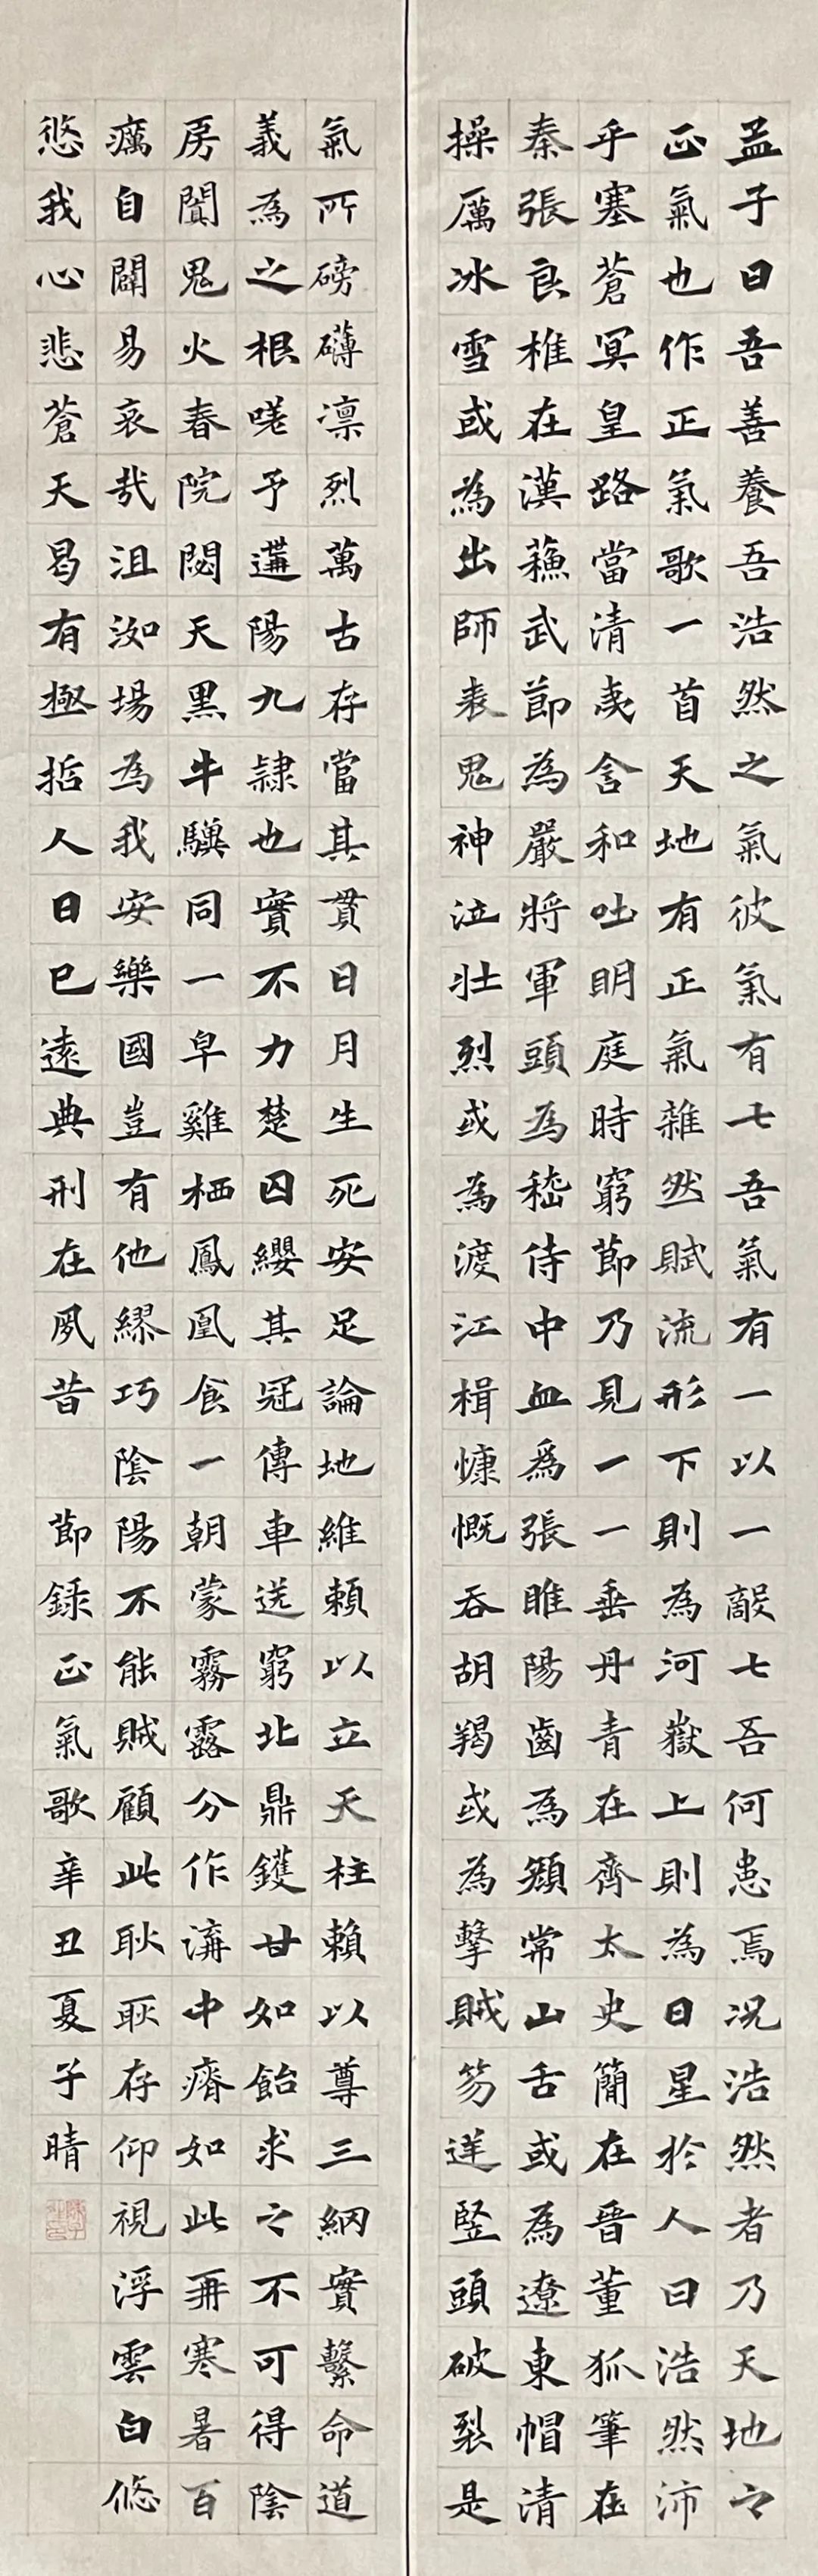 孟子曰吾善養吾浩然之氣彼氣有七吾氣有一以一敵七吾何患焉況浩然者乃天地之
正氣也作正氣歌一首天地有正氣雜然賦流形下則為河嶽上則為日星於人曰浩然沛
乎塞蒼冥皇路當清夷含和吐明庭時窮節乃見一一垂丹青在齊太史簡在晉董狐筆在
秦張良椎在漢蘓武節為嚴將軍頭為嵇侍中血爲張睢陽齒為顏常山舌或為遼東帽清
操厲冰雪或為出師表鬼神泣壯烈或為渡江楫慷慨吞胡羯或為擊賊笏逆豎頭破裂是
氣所磅礴凜烈萬古存當其貫日月生死安足論地維賴以立天柱賴以尊三綱實繫命道
義為之根嗟予遘陽九隸也實不力楚囚纓其冠傳車送窮北鼎鑊甘如飴求之不可得陰
房闃鬼火春院閟天黑牛驥同一皁雞栖鳳凰食一朝蒙霧露分作溝中瘠如此再寒暑百
癘自闢易哀哉沮洳場為我安樂國豈有他繆巧陰陽不能賊顧此耿耿存仰視浮雲白悠
悠我心悲蒼天曷有極哲人日已遠典刑在夙昔 節錄正氣歌辛丑夏子晴